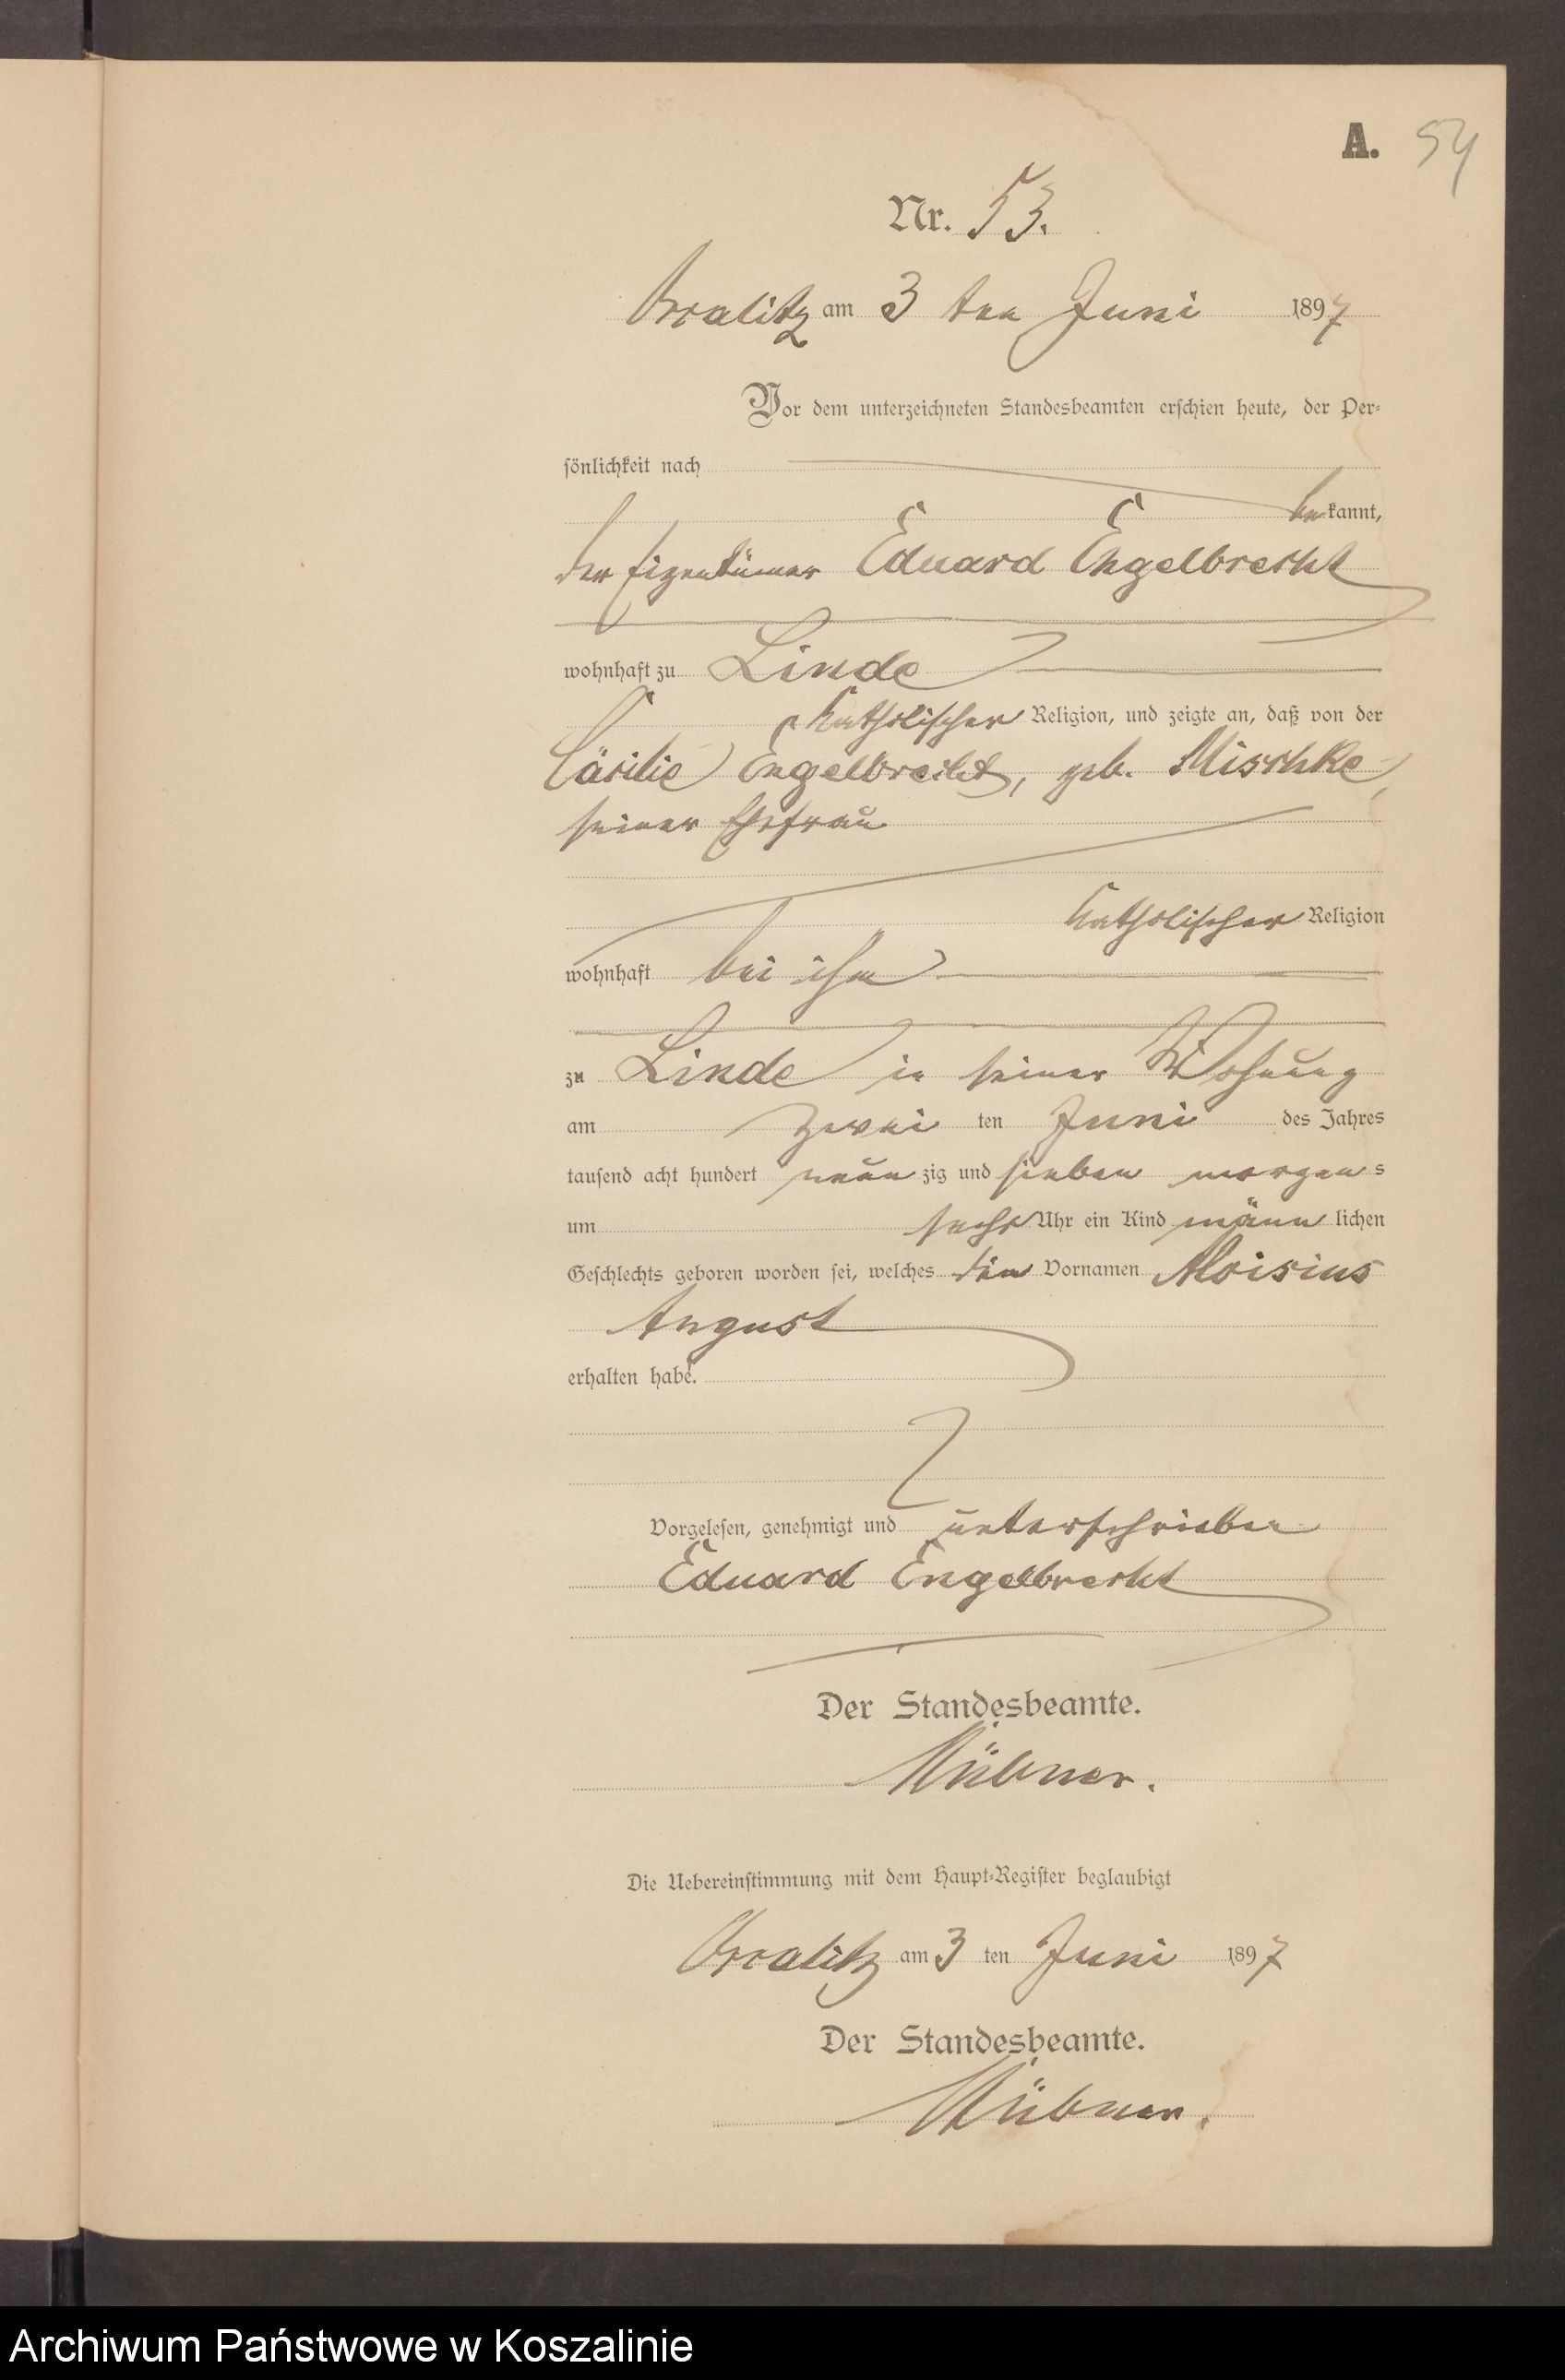 A. 54
Nr. 53.
am 3 ten Juni 1897
Vor dem unterzeichneten Standesbeamten erschien heute, der Per-
sönlichkeit nach
bekannt,
der Eigentümer Eduard Engelbrecht
wohnhaft zu Linde
katholischer Religion, und zeigte an, daß von der
Cäcilie Engelbrecht, geb. Mischke,
seiner Ehefrau
katholischer Religion
wohnhaft bei ihm
zu Linde in seiner Wohnung
am zwei ten Juni des Jahres
tausend acht hundert neun zig und sieben morgens
um sechs Uhr ein Kind männlichen
Geschlechts geboren worden sei, welches die Vornamen Aloisius
August
erhalten habe.
Vorgelesen, genehmigt und unterschrieben
Eduard Engelbrecht
Der Standesbeamte.
Die Uebereinstimmung mit dem Haupt-Register beglaubigt
am 3 ten Juni 1897
Der Standesbeamte.
Archiwum Państwowe w Koszalinie